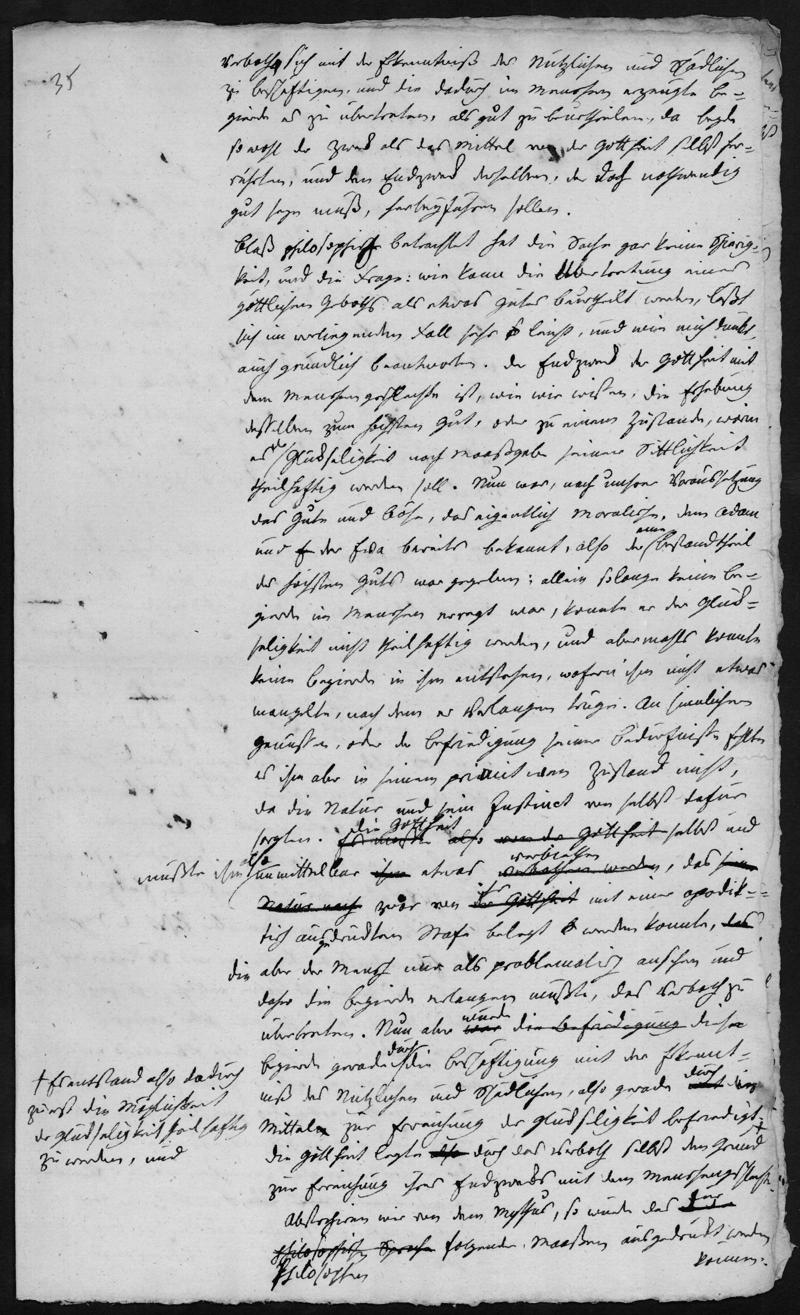 35
Verboth, sich mit der Erkenntniß des Nützlichen und Schädlichen
zu beschäftigen, und die dadurch im Menschen erzeugte Be-
gierde es zu übertreten, als gut zu beurtheilen, da beyde
sowohl der Zweck als das Mittel von der Gottheit selbst her-
rührten, und den Endzweck derselben, der doch nothwendig
gut seyn muß, herbeyführen sollen.
Bloß philosophisch betrachtet hat die Sache gar keine Schwierig-
keit, und die Frage: wie kann die Übertretung eines
göttlichen Geboths als etwas gutes beurtheilt werden, läßt
sich im vorliegenden Fall sehr leicht, und wie mich dünkt,
auch gründlich beantworten. Der Endzweck der Gottheit mit
dem Menschengeschlechte ist, wie wir wissen, die Erhebung
desselben zum höchsten Gut, oder zu einem Zustande, worin
es der Glückseligkeit nach Maaßgabe seiner Sittlichkeit
theilhaftig werden soll. Nun war, nach unsrer Voraussetzung
das Gute und Böse, das eigentlich Moralische, dem Adam
und der Eva bereits bekannt, also der eine Bestandtheil
des höchsten Guts war gegeben; allein solange keine Be-
gierde im Menschen erregt war, konnte er der Glück-
seligkeit nicht theilhaftig werden, und abermahls konnte
keine Begierde in ihm entstehen, wofern ihm nicht etwas
mangelte, nach dem er Verlangen trüge. An sinnlichen
Genüssen, oder der Befriedigung seiner Bedürfnisse fehlte
es ihm aber in seinem primitiven Zustand nicht,
da die Natur und sein Instinct von selbst dafür
sorgten. die Gottheit also von der Gottheit selbst und
mußte ihm also unmittelbar ihm etwas verbiethen verbothen werden, das seine
Natur nach zwar von ihr der Gottheit mit einer apodik-
tisch ausgedruckten Strafe belegt werden konnte, das
die aber der Mensch nur als problematisch ansehen und
daher die Begierde erlangen mußte, das Verboth zu
übertreten. Nun aber wurde war die Befriedigung diese
Begierde gerade durch die Beschäftigung mit der Erkennt-
niß des Nützlichen und Schädlichen, also gerade durch
Mittel zur Erreichung der Glückseligkeit befriedigt, †
die Gottheit legte also durch das Verboth selbst den Grund
zur Erreichung ihres Endzwecks mit dem Menschengeschlecht.
Abstrahiren wir von dem Mythus, so würde das
philosophische Sprache folgender Maaßen ausgedrückt werden
Philosophen können:
† Es entstand also dadurch
zuerst die Möglichkeit
der Glückseligkeit theilhaftig
zu werden, und